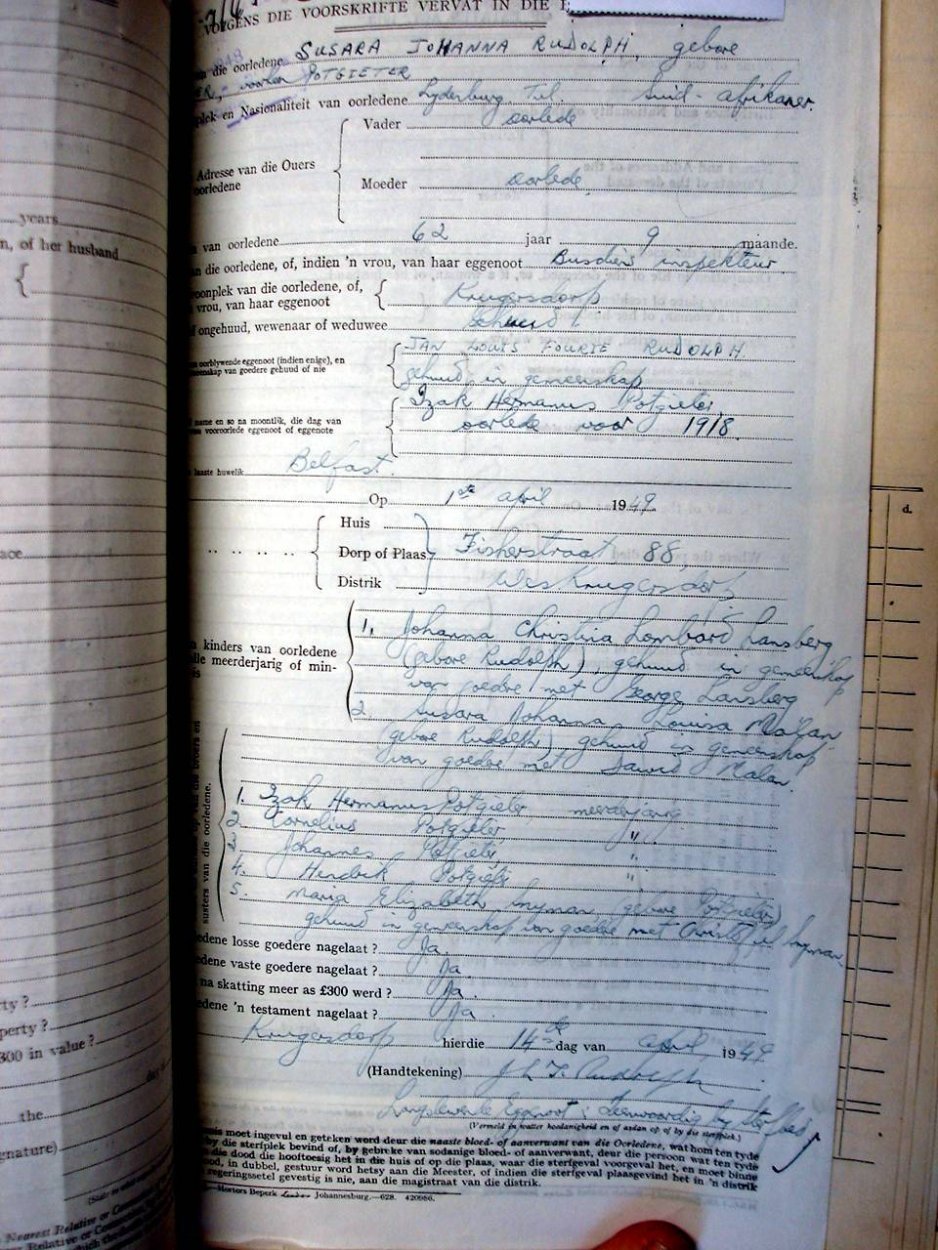 VOLGENS DIE VOORSKRIFTE VERVAT IN DIE
die oorledene SUSARA JOHANNA RUDOLPH, gebore
ER, voorheen POTGIETER
plek en Nasionaliteit van oorledene Lydenburg Tvl. Suid-Afrikaner.
Vader oorlede
Adresse van die Ouers
oorledene
Moeder oorlede
van oorledene 62 jaar 9 maande.
die oorledene, of, indien 'n vrou, van haar eggenoot Busdiens inspekteur
oonplek van die oorledene, of,
vrou, van haar eggenoot Krugersdorp
ongehuud, wewenaar of weduwee Gehuud
oorblywende eggenoot (indien enige), en JAN LOUIS FOURIE RUDOLPH
enskap van goedere gehuud of nie gehuud in gemeenskap
name en so na moontlik, die dag van Izak Hermanus Potgieter,
vooroorlede eggenoot of eggenote oorlede voor 1918.
laaste huwelik Belfast.
Op 1ste April 1949
Huis
Dorp of Plaas Fisherstraat 88,
Distrik Wes Krugersdorp
kinders van oorledene
lle meerderjarig of min-
is
1. Johanna Christina Lombard Lansberg
(gebore Rudolph), gehuud in gemeenskap
van goedre met George Lansberg
2. Susara Johanna Louisa Malan
(gebore Rudolph), gehuud in gemeenskap
van goedre met Dawid Malan.
susters van die oorledene.
1. Izak Hermanus Potgieter meerderjarig
2. Cornelius Potgieter "
3. Johannes Potgieter "
4. Hendrik Potgieter "
5. Maria Elizabeth Snyman, gebore Potgieter)
gehuud in gemeenskap van goedre met Snyman.
edene losse goedere nagelaat? Ja.
edene vaste goedere nagelaat? Ja.
na skatting meer as £300 werd? Ja.
edene 'n testament nagelaat? Ja.
Krugersdorp hierdie 14de dag van April, 1949
(Handtekening) J L F Rudolph
Langslewende Eggenoot: Teenwoordig by sterfbed
(Vermeld in watter hoedanigheid en of aldan op of by die sterfplek.)
nis moet ingevul en geteken word deur die naaste bloed- of aanverwant van die Oorledene, wat hom ten tyde
by die sterfplek bevind of, by gebreke van sodanige bloed- of aanverwant, deur die persoon wat ten tyde
die dood die hooftoesig het in die huis of op die plaas, waar die sterfgeval voorgeval het, en moet binne
ood, in dubbel, gestuur word hetsy aan die Meester, of indien die sterfgeval plaasgevind het in 'n distrik
regeringssetel gevestig is nie, aan die magistraat van die distrik.
Mortors Beperk London Johannesburg.—628. 420986.
years
n, of her husband
ty?
perty?
300 in value?
the
gnature)
d.